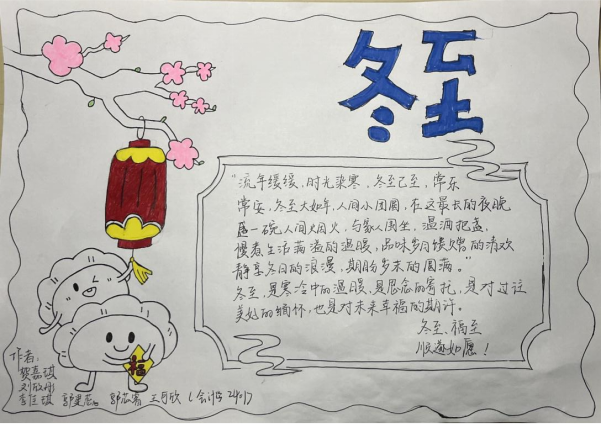 冬至
"流年缓缓,时光染寒,冬至已至,常乐
常安,冬至大如年,人间小团圆,在这最长的夜晚
一碗人间烟火,与家人围坐,温酒把盏,
慢煮生活满溢的温暖,品味岁月馈赠的清欢
静享冬日的浪漫,期盼岁末的圆满。"
冬至,是寒冷中的温暖,是思念的寄托,是对过往
美好的缅怀,也是对未来幸福的期许。
冬至、福至
顺遂如愿!
福
作者: